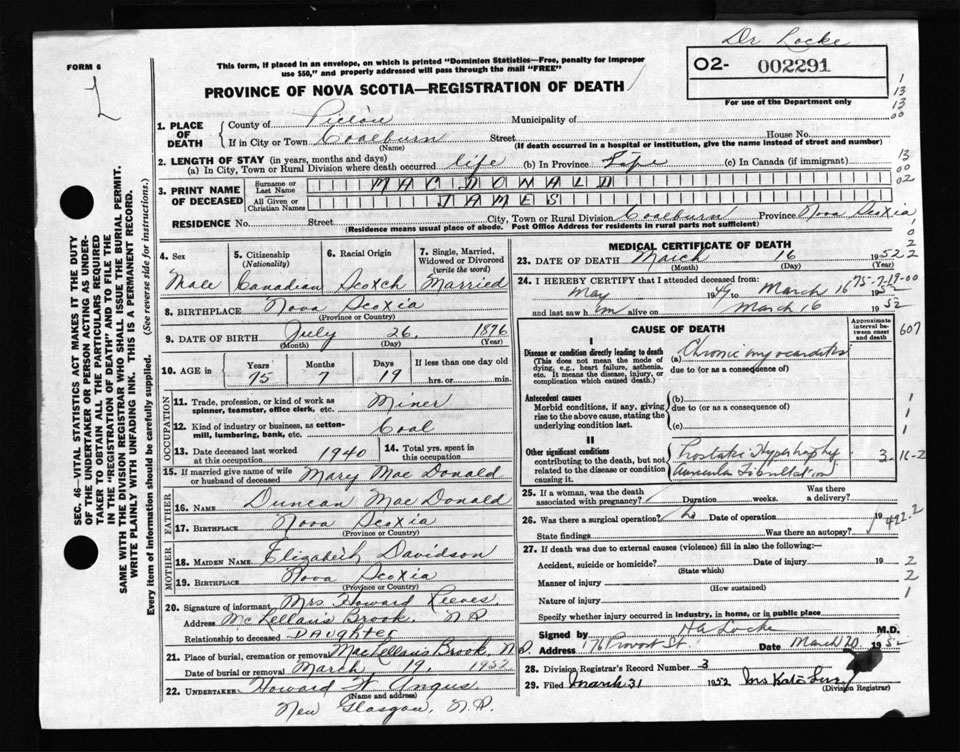 Dr Locke
FORM 6
L
This form, if placed in an envelope, on which is printed "Dominion Statistics—Free, penalty for improper
use $50," and properly addressed will pass through the mail "FREE"
PROVINCE OF NOVA SCOTIA—REGISTRATION OF DEATH
O2- 002291
For use of the Department only
1. PLACE OF DEATH { County of Pictou Municipality of
If in City or Town Coalburn Street House No.
(Name) (If death occurred in a hospital or institution, give the name instead of street and number)
2. LENGTH OF STAY (in years, months and days)
(a) In City, Town or Rural Division where death occurred life (b) In Province Life (c) In Canada (if immigrant)
3. PRINT NAME OF DECEASED { Surname or Last Name MAC DONALD
All Given or Christian Names JAMES
RESIDENCE No. Street City, Town or Rural Division Coalburn Province Nova Scotia
(Residence means usual place of abode. Post Office Address for residents in rural parts not sufficient)
SEC. 46—VITAL STATISTICS ACT MAKES IT THE DUTY
OF THE UNDERTAKER OR PERSON ACTING AS UNDER-
TAKER TO OBTAIN ALL THE PARTICULARS REQUIRED
IN THE "REGISTRATION OF DEATH" AND TO FILE THE
SAME WITH THE DIVISION REGISTRAR WHO SHALL ISSUE THE BURIAL PERMIT.
WRITE PLAINLY WITH UNFADING INK. THIS IS A PERMANENT RECORD.
Every item of information should be carefully supplied. (See reverse side for instructions.)
4. Sex 5. Citizenship (Nationality) 6. Racial Origin 7. Single, Married, Widowed or Divorced (write the word)
Male Canadian Scotch Married
8. BIRTHPLACE Nova Scotia
(Province or Country)
9. DATE OF BIRTH July 26, 1876
(Month) (Day) (Year)
10. AGE Years Months Days If less than one day old
75 7 19 hrs. or min.
OCCUPATION
11. Trade, profession, or kind of work as spinner, teamster, office clerk, etc. Miner
12. Kind of industry or business, as cotton-mill, lumbering, bank, etc. Coal
13. Date deceased last worked at this occupation 1940 14. Total yrs. spent in this occupation
15. If married give name of wife or husband of deceased Mary Mac Donald
FATHER
16. NAME Duncan MacDonald
17. BIRTHPLACE Nova Scotia
(Province or Country)
MOTHER
18. MAIDEN NAME Elizabeth Davidson
19. BIRTHPLACE Nova Scotia
(Province or Country)
20. Signature of informant Mrs Howard Reeves
Address McLellans Brook, N.S.
Relationship to deceased DAUGHTER
21. Place of burial, cremation or removal MacLellans Brook, N.S.
Date of burial or removal March 19, 1952
22. UNDERTAKER Howard W Angus
(Name and address)
New Glasgow, N.S.
MEDICAL CERTIFICATE OF DEATH
23. DATE OF DEATH March 16 1952
(Month) (Day) (Year)
24. I HEREBY CERTIFY that I attended deceased from:
May 1949 to March 16 1952
and last saw him alive on March 16 1952
75-7-19-00
CAUSE OF DEATH
Approximate interval between onset and death
607
I
Disease or condition directly leading to death
(This does not mean the mode of dying, e.g., heart failure, asthenia, etc. It means the disease, injury, or complication which caused death.)
(a) Chronic myocarditis
due to (or as a consequence of)
Antecedent causes
Morbid conditions, if any, giving rise to the above cause, stating the underlying condition last.
(b)
due to (or as a consequence of)
(c)
II
Other significant conditions
contributing to the death, but not related to the disease or condition causing it.
Prostatic Hypertrophy
Auricular Fibrillation
3
25. If a woman, was the death associated with pregnancy? Duration weeks. Was there a delivery?
26. Was there a surgical operation? Date of operation 19
State findings Was there an autopsy?
422.2
27. If death was due to external causes (violence) fill in also the following:—
Accident, suicide or homicide? Date of injury 19
(State which)
Manner of injury
(How sustained)
Nature of injury
Specify whether injury occurred in industry, in home, or in public place
Signed by HA Locke M.D.
Address 176 Provost St. Date March 20 1952
28. Division Registrar's Record Number 3
29. Filed March 31 1952 Mrs Kate
(Division Registrar)